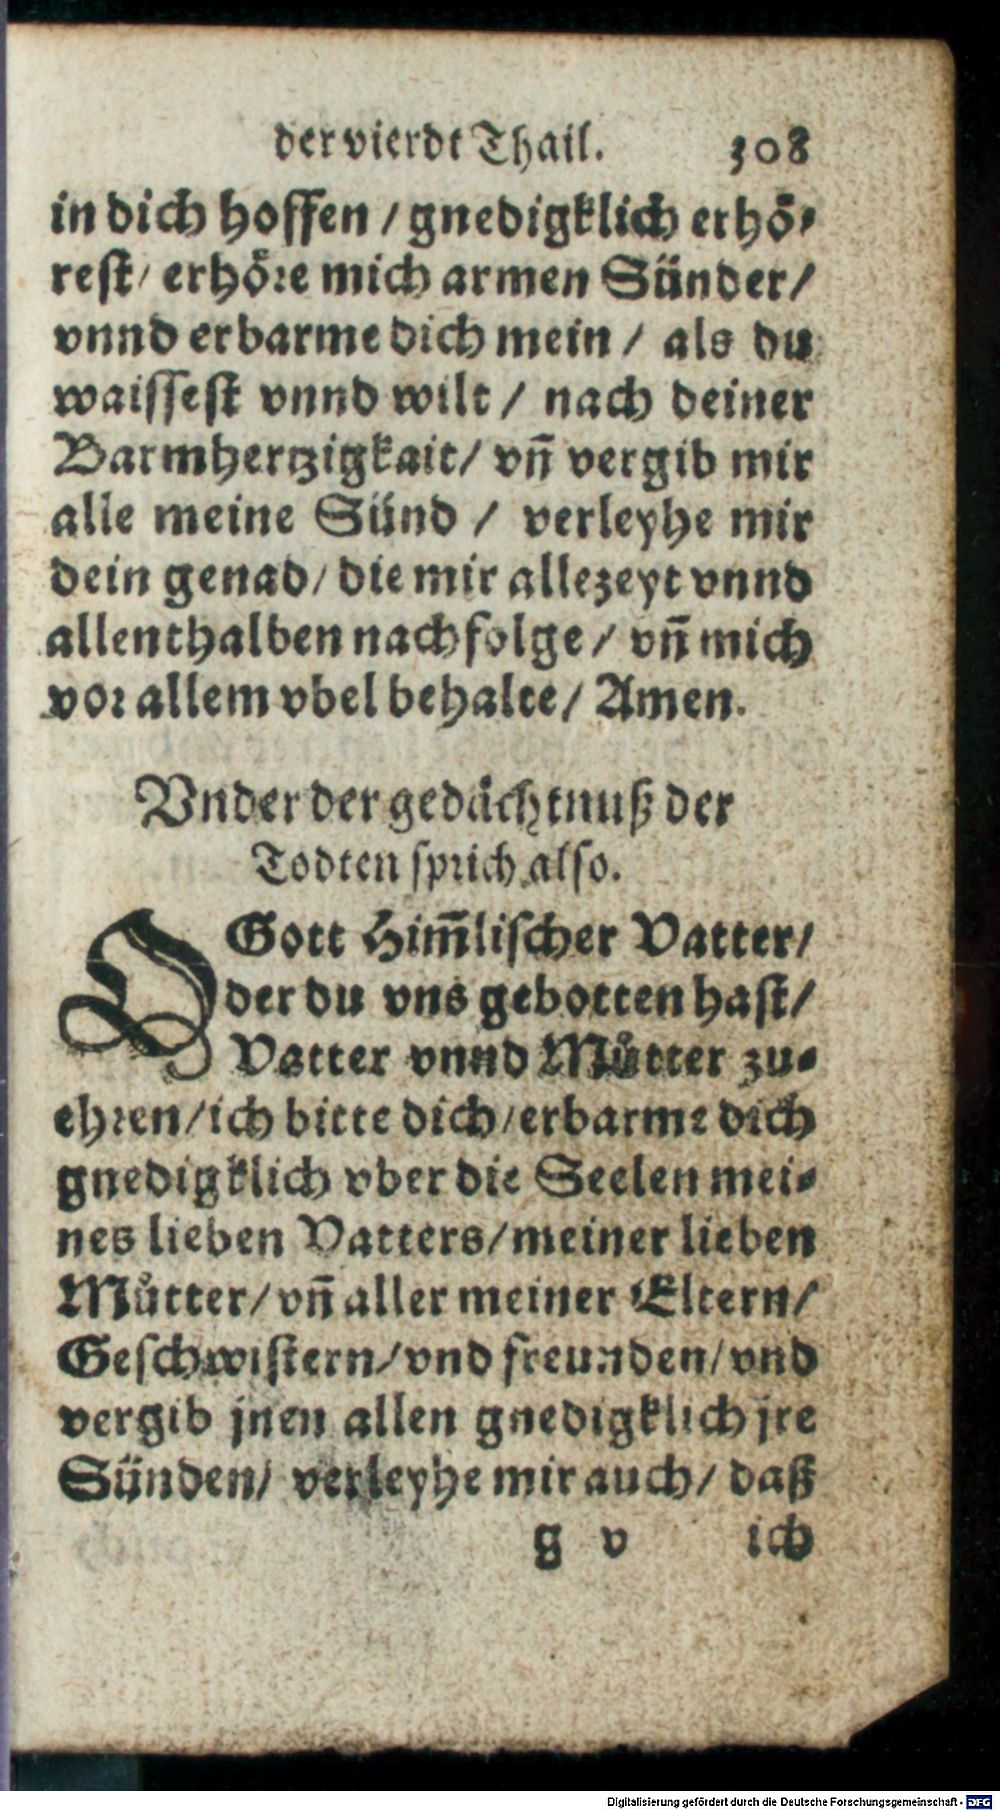 der vierdt Thail. 308
in dich hoffen / gnedigklich erhö⸗
rest / erhöre mich armen Sünder /
vnnd erbarme dich mein / als du
waissest vnnd wilt / nach deiner
Barmhertzigkait / vn̄ vergib mir
alle meine Sünd / verleyhe mir
dein genad / die mir allezeyt vnnd
allenthalben nachfolge / vn̄ mich
vor allem vbel behalte / Amen.
Vnder der gedächtnuß der
Todten sprich also.
O Gott Him̄lischer Vatter /
der du vns gebotten hast /
Vatter vnnd Můtter zu⸗
ehren / ich bitte dich / erbarme dich
gnedigklich vber die Seelen mei⸗
nes lieben Vatters / meiner lieben
Můtter / vn̄ aller meiner Eltern /
Geschwistern / vnd freunden / vnd
vergib jnen allen gnedigklich jre
Sünden / verleyhe mir auch / daß
g v ich
Digitalisierung gefördert durch die Deutsche Forschungsgemeinschaft - DFG